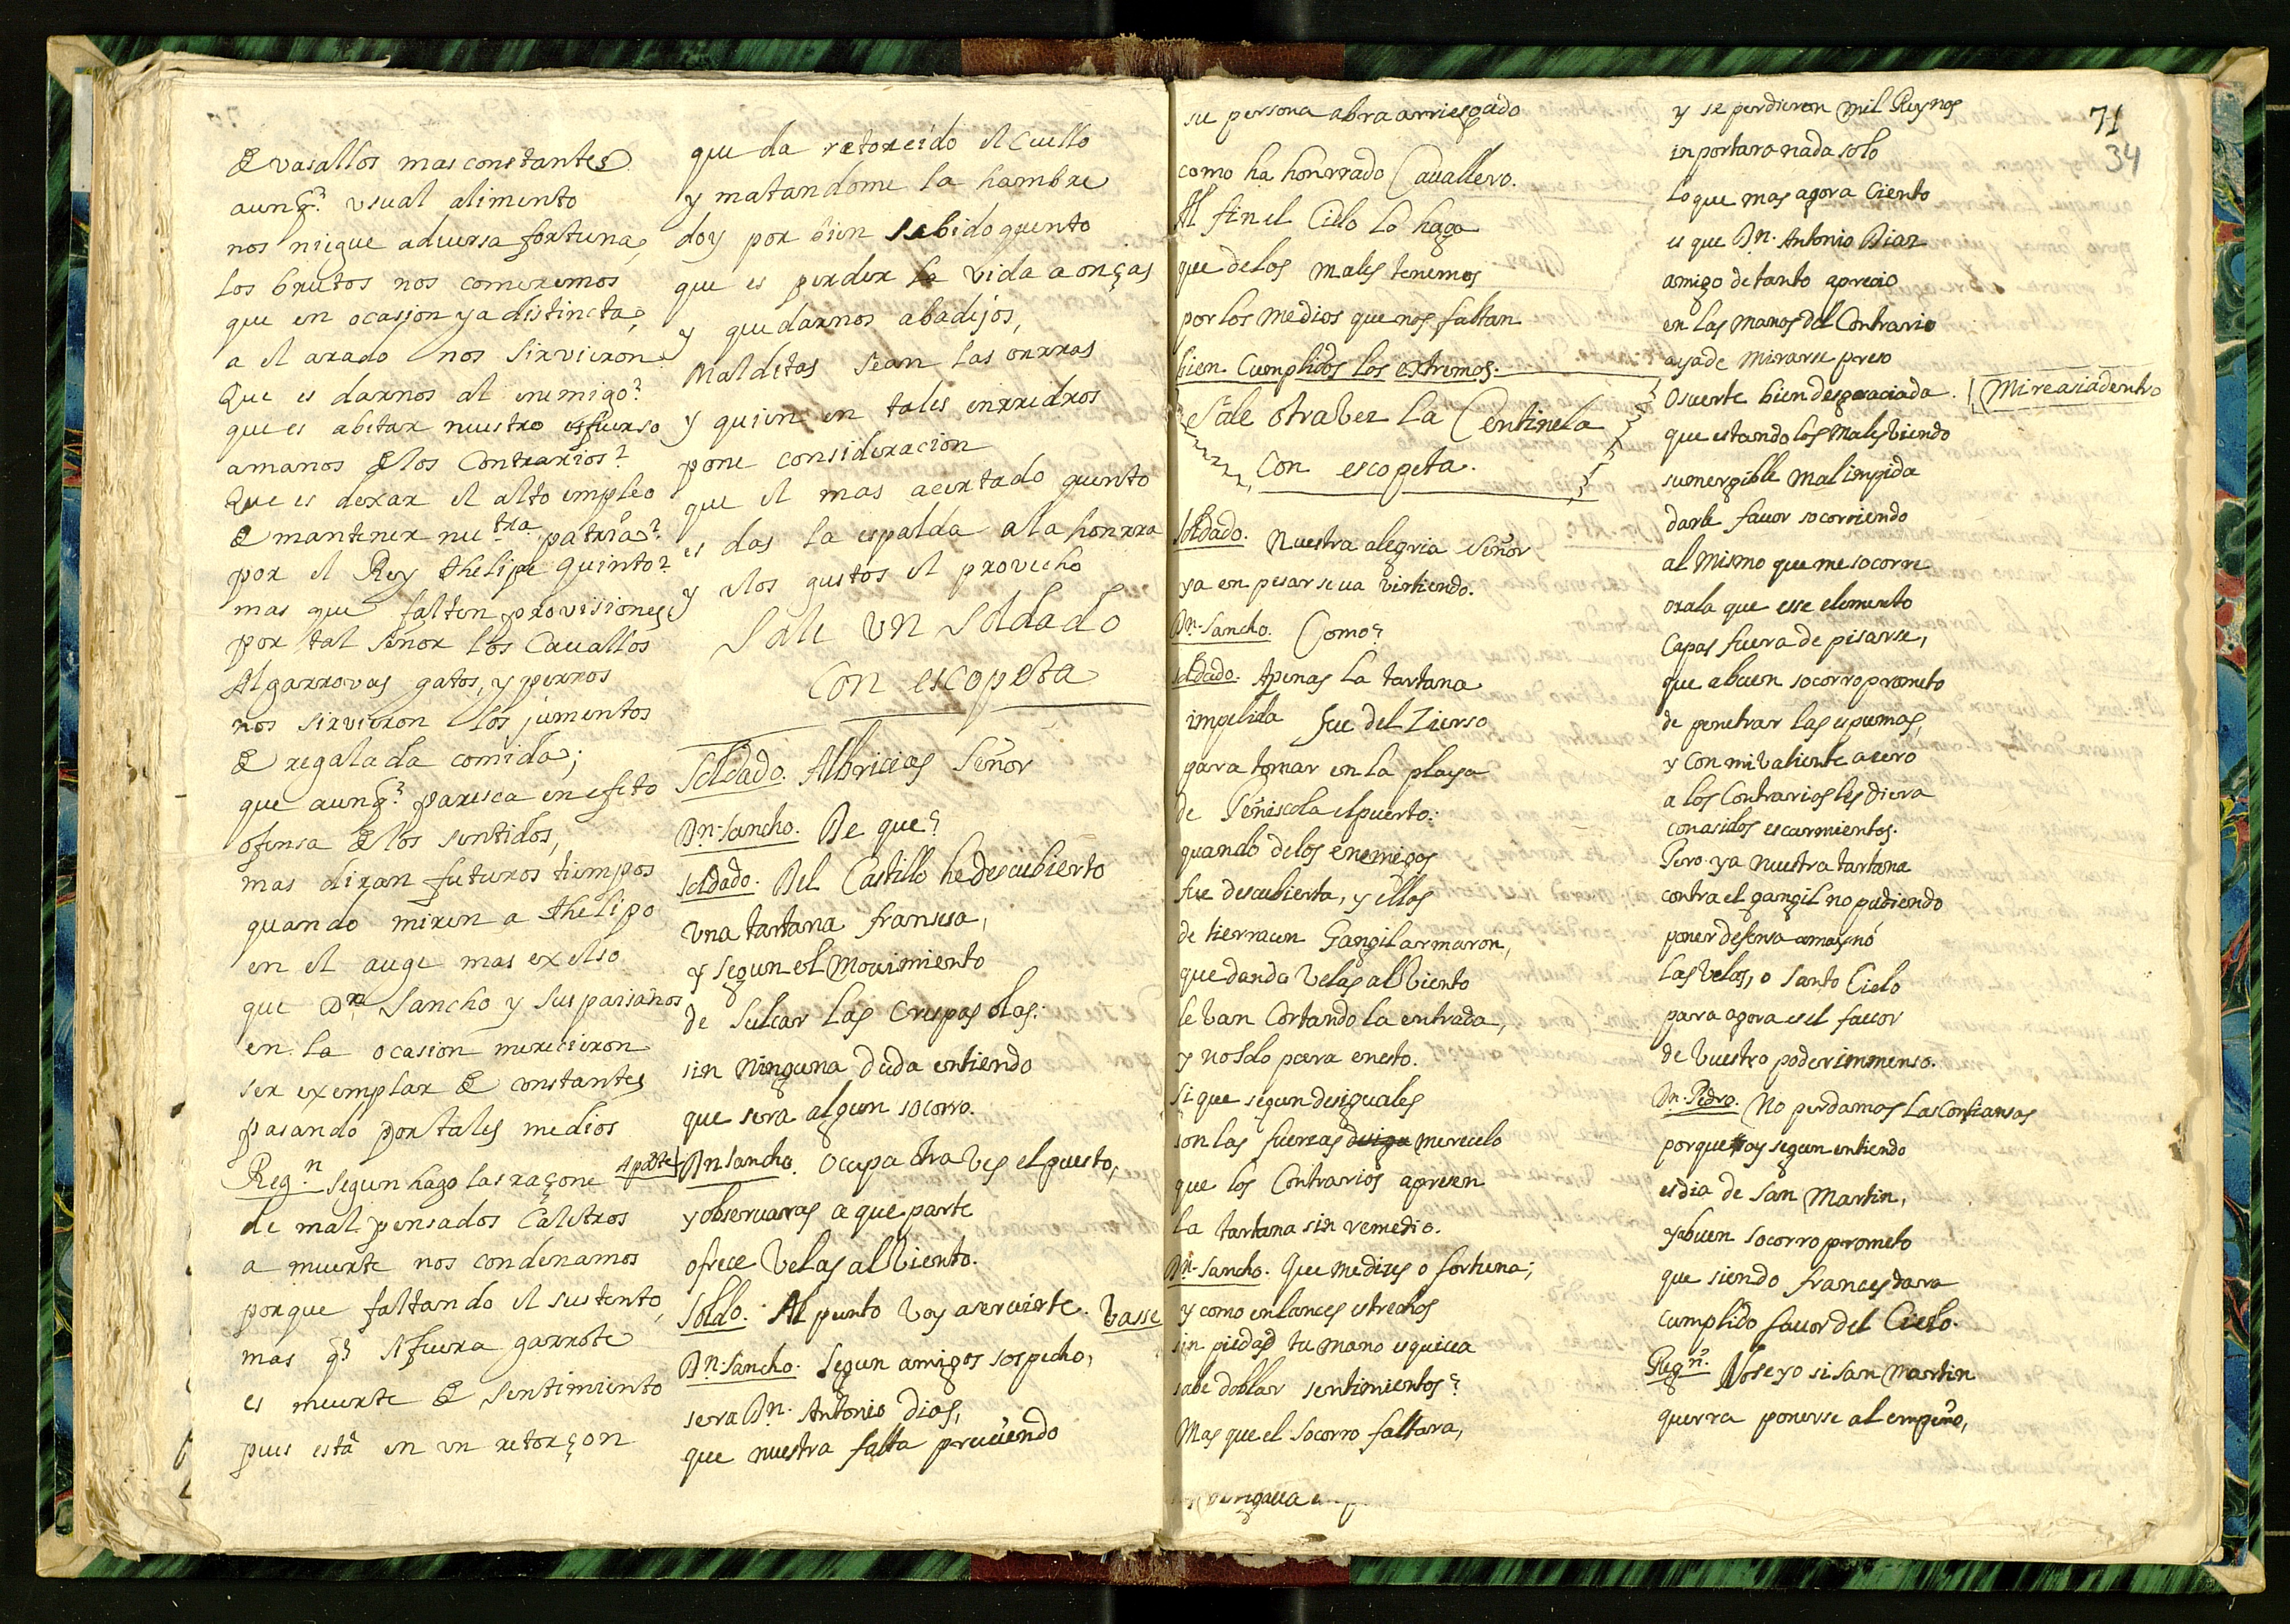 de vasallos mas constantes
aunq.e usual alimento
nos niegue adversa fortuna,
los brutos nos comeremos
que en ocasion ya distincta,
a el arado nos sirvieron
Que es darnos al enemigo?
que es abitar nuestro esfuerso
amanos de los Contrarios?
Que es dexar el alto empleo
de mantener nu.tra patria?
por el Rey Phelipe Quinto?
mas que falten provisiones
por tal señor los Cavallos
Algarrovas gatos, y perros
nos sirvieron los jumentos
de regalada comida;
que aunq.e paresca en efeto
ofensa de los sentidos,
mas diran futuros tiempos
quando miren a Phelipo
en el auge mas exelso
que Dn Sancho y sus paisanos
en la ocasion merecieron
ser exemplar de constantes
pasando por tales medios
Reg.n segun hago las raçone Aparte
de mal pensados Caletros
a muerte nos condenamos
porque faltando el sustento,
mas q.e si fuera garrote
es muerte de sentimiento
pues está en un retorçon
que da retorcido el Cuello
y matandome la hambre
doy por bien sabido quento
que es perder la vida a onças
y quedarnos abadejos,
Malditas sean las onrras
y quien en tales enrredros
pone consideracion
que el mas acertado quento
es das la espalda a la honrra
y a los gustos el provecho
Sale un Soldado
Con escopeta
Soldado. Albricias Señor
Dn. Sancho. De que?
soldado. Del Castillo he descubierto
una tartana fransesa,
y segun el movimiento
de sulcar las crespas olas.
sin ninguna duda entiendo
que sera algun socorro.
Dn Sancho. Ocupa otra ves el puesto,
y observaras a que parte
ofrece Velas al Viento.
Soldo. Al punto voy aservirte. Vasse
Dn. Sancho. Segun amigos sospecho,
sera Dn. Antonio Dias,
que nuestra falta preuiendo
su persona abra arriesgado
como ha honrrado Cavallero.
Al fin el Cielo lo haga
que de los males tenemos
por los medios que nos faltan
bien Cumplidos los extremos.
Sale otra Vez la Centinela
Con escopeta.
Soldado. Nuestra alegria Señor
ya en pesar se va virtiendo.
Dn. Sancho. Como?
soldado. Apenas la tartana
impelida fue del Zierso
para tomar en la playa
de Peñiscola el puerto.
quando de los enemigos
fue descubierta, y ellos
de tierra un Gangil armaron,
que dando velas al Viento
le van Cortando la entrada,
y no solo para en esto.
si que segun desiguales
son las fuerzas desigu merecelo
que los Contrarios apresen
la tartana sin remedio.
Dn. Sancho. Que me dizes o fortuna;
y como en lances estrechos
sin piedad tu mano esquiva
sabe doblar sentimientos?
Mas que el Socorro faltara,
y se perdieron mil Reynos
inportara nada solo
lo que mas agora Ciento
es que Dn. Antonio Diaz
amigo de tanto aprecio
en las manos del Contrario
aya de mirarse preso
O suerte bien desgraciada. Mire asia dentro
que estando los males viendo
sumergible mal impida
darle favor socorriendo
al mismo que me socorre
oxala que esse elemento
Capas fuera de pisarse,
que a buen socorro prometo
de penetrar las espumas,
y con mi valiente acero
a los Contrarios les diera
conosidos escarmientos.
Pero ya nuestra tartana
contra el gangil no pudiendo
poner defensa amaynó
las velas, o Santo Cielo
para agora es el favor
de Vuestro poder immenso.
Dn. Pedro. No perdamos las Confiansas
porque oy segun entiendo
es dia de San Martin,
y a buen socorro prometo
que siendo frances dara
cumplido favor del Cielo.
Regn. No se yo si San Martin
querra ponerse al empeño,
71
34